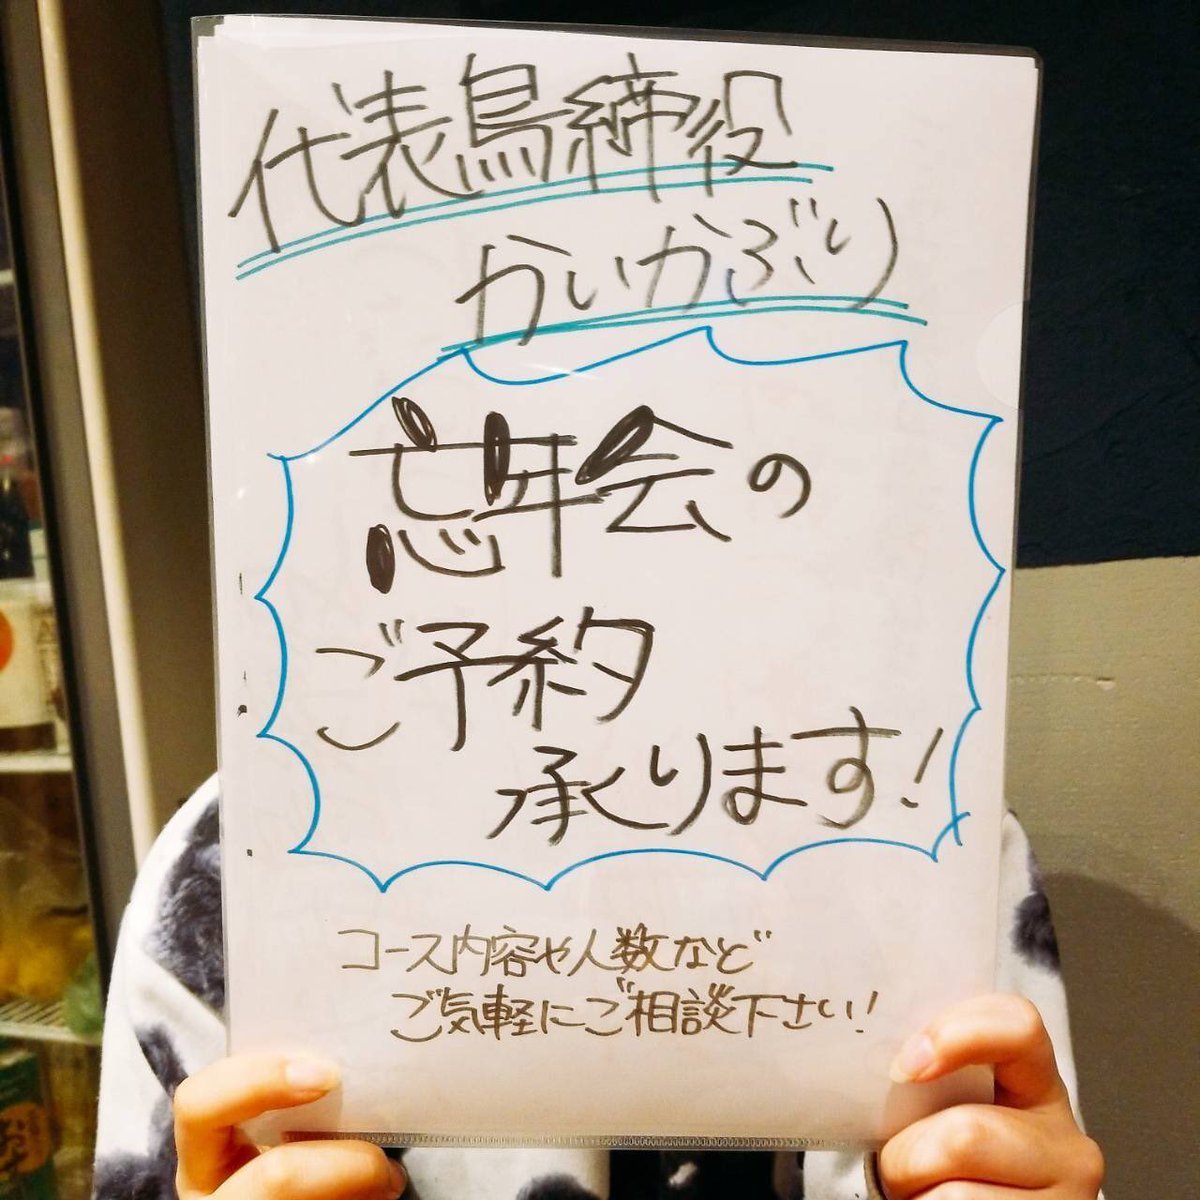 代表鳥締役
かいかぶり
忘年会の
ご予約
承ります!
コース内容や人数など
ご気軽にご相談下さい!